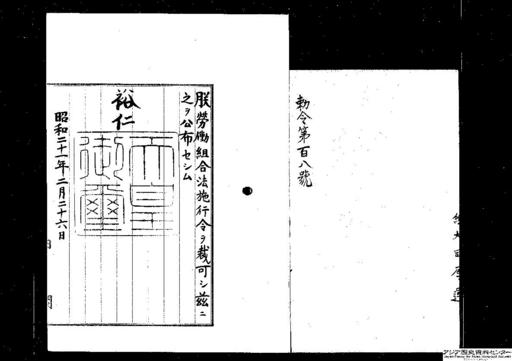 勅令第百八號
朕勞働組合法施行令ヲ裁可シ茲ニ
之ヲ公布セシム
裕仁
天皇
御璽
昭和二十一年二月二十六日
アジア歴史資料センター